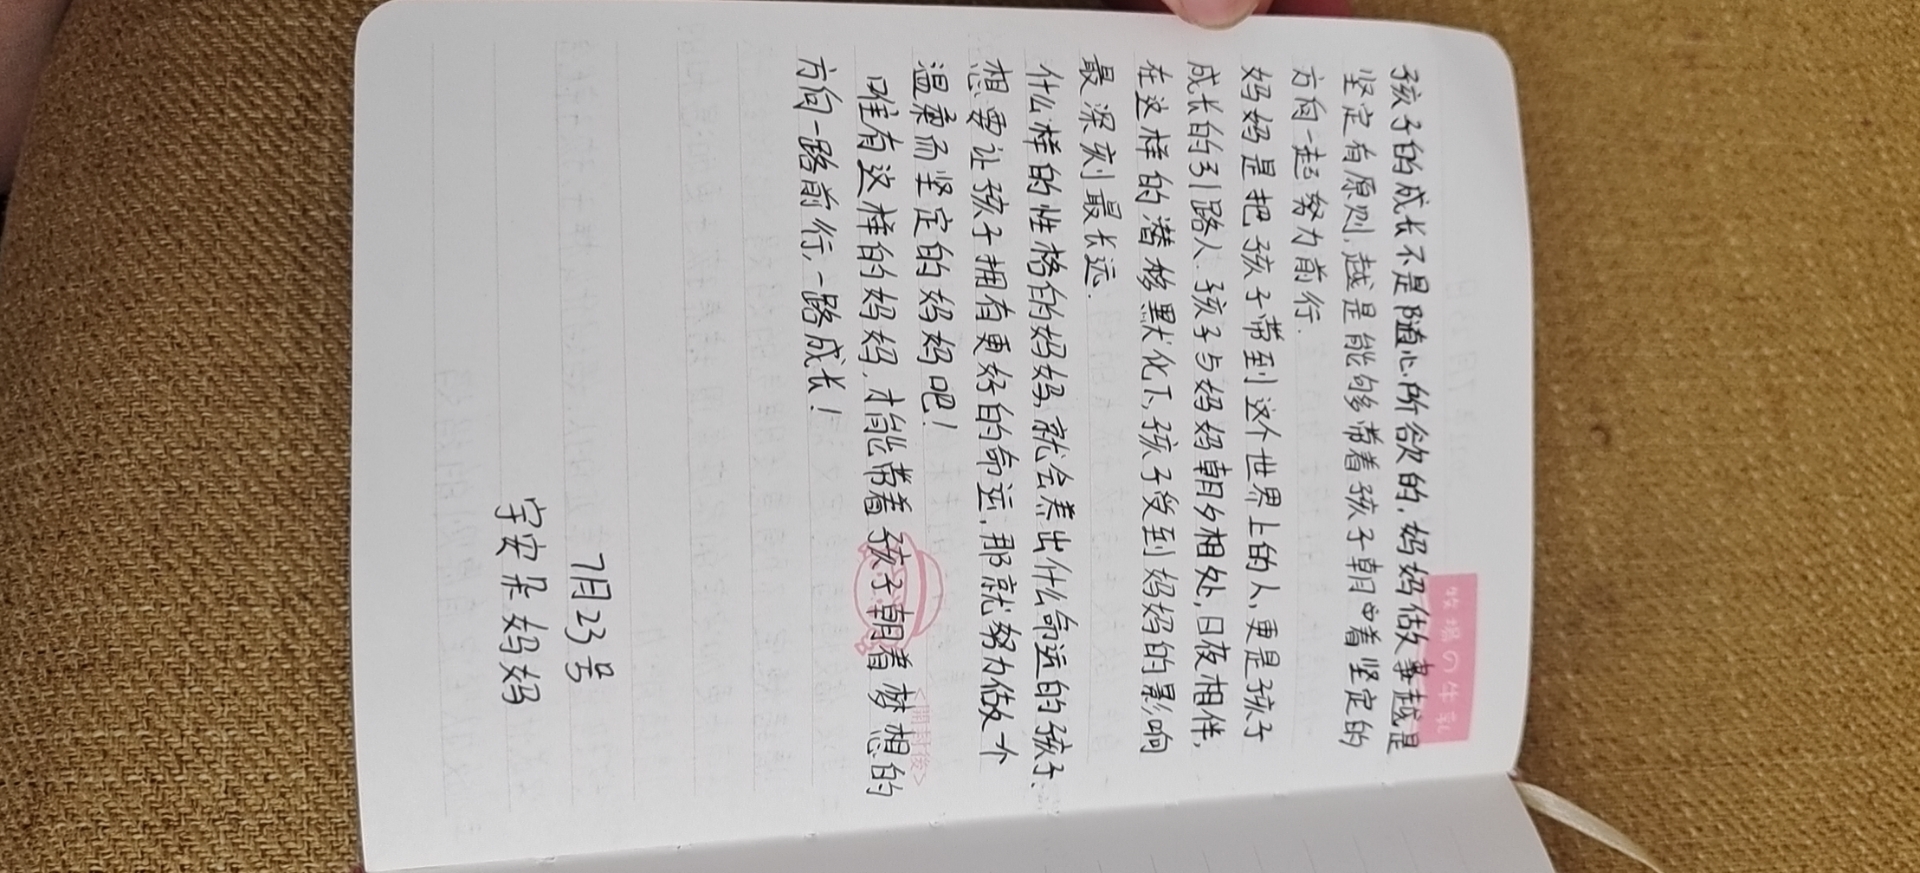 牧場の牛乳
孩子的成长不是随心所欲的,妈妈做事越是
坚定有原则,越是能够带着孩子朝着坚定的
方向一起努力前行.
妈妈是把孩子带到这个世界上的人,更是孩子
成长的引路人.孩子与妈妈朝夕相处,日夜相伴,
在这样的潜移默化下,孩子受到妈妈的影响
最深刻最长远.
什么样的性格的妈妈,就会养出什么命运的孩子、
想要让孩子拥有更好的命运,那就努力做个
温柔而坚定的妈妈吧!
唯有这样的妈妈,才能带着孩子朝着梦想的
<開封後>
方向一路前行,一路成长!
7月23号
宇安呆妈妈